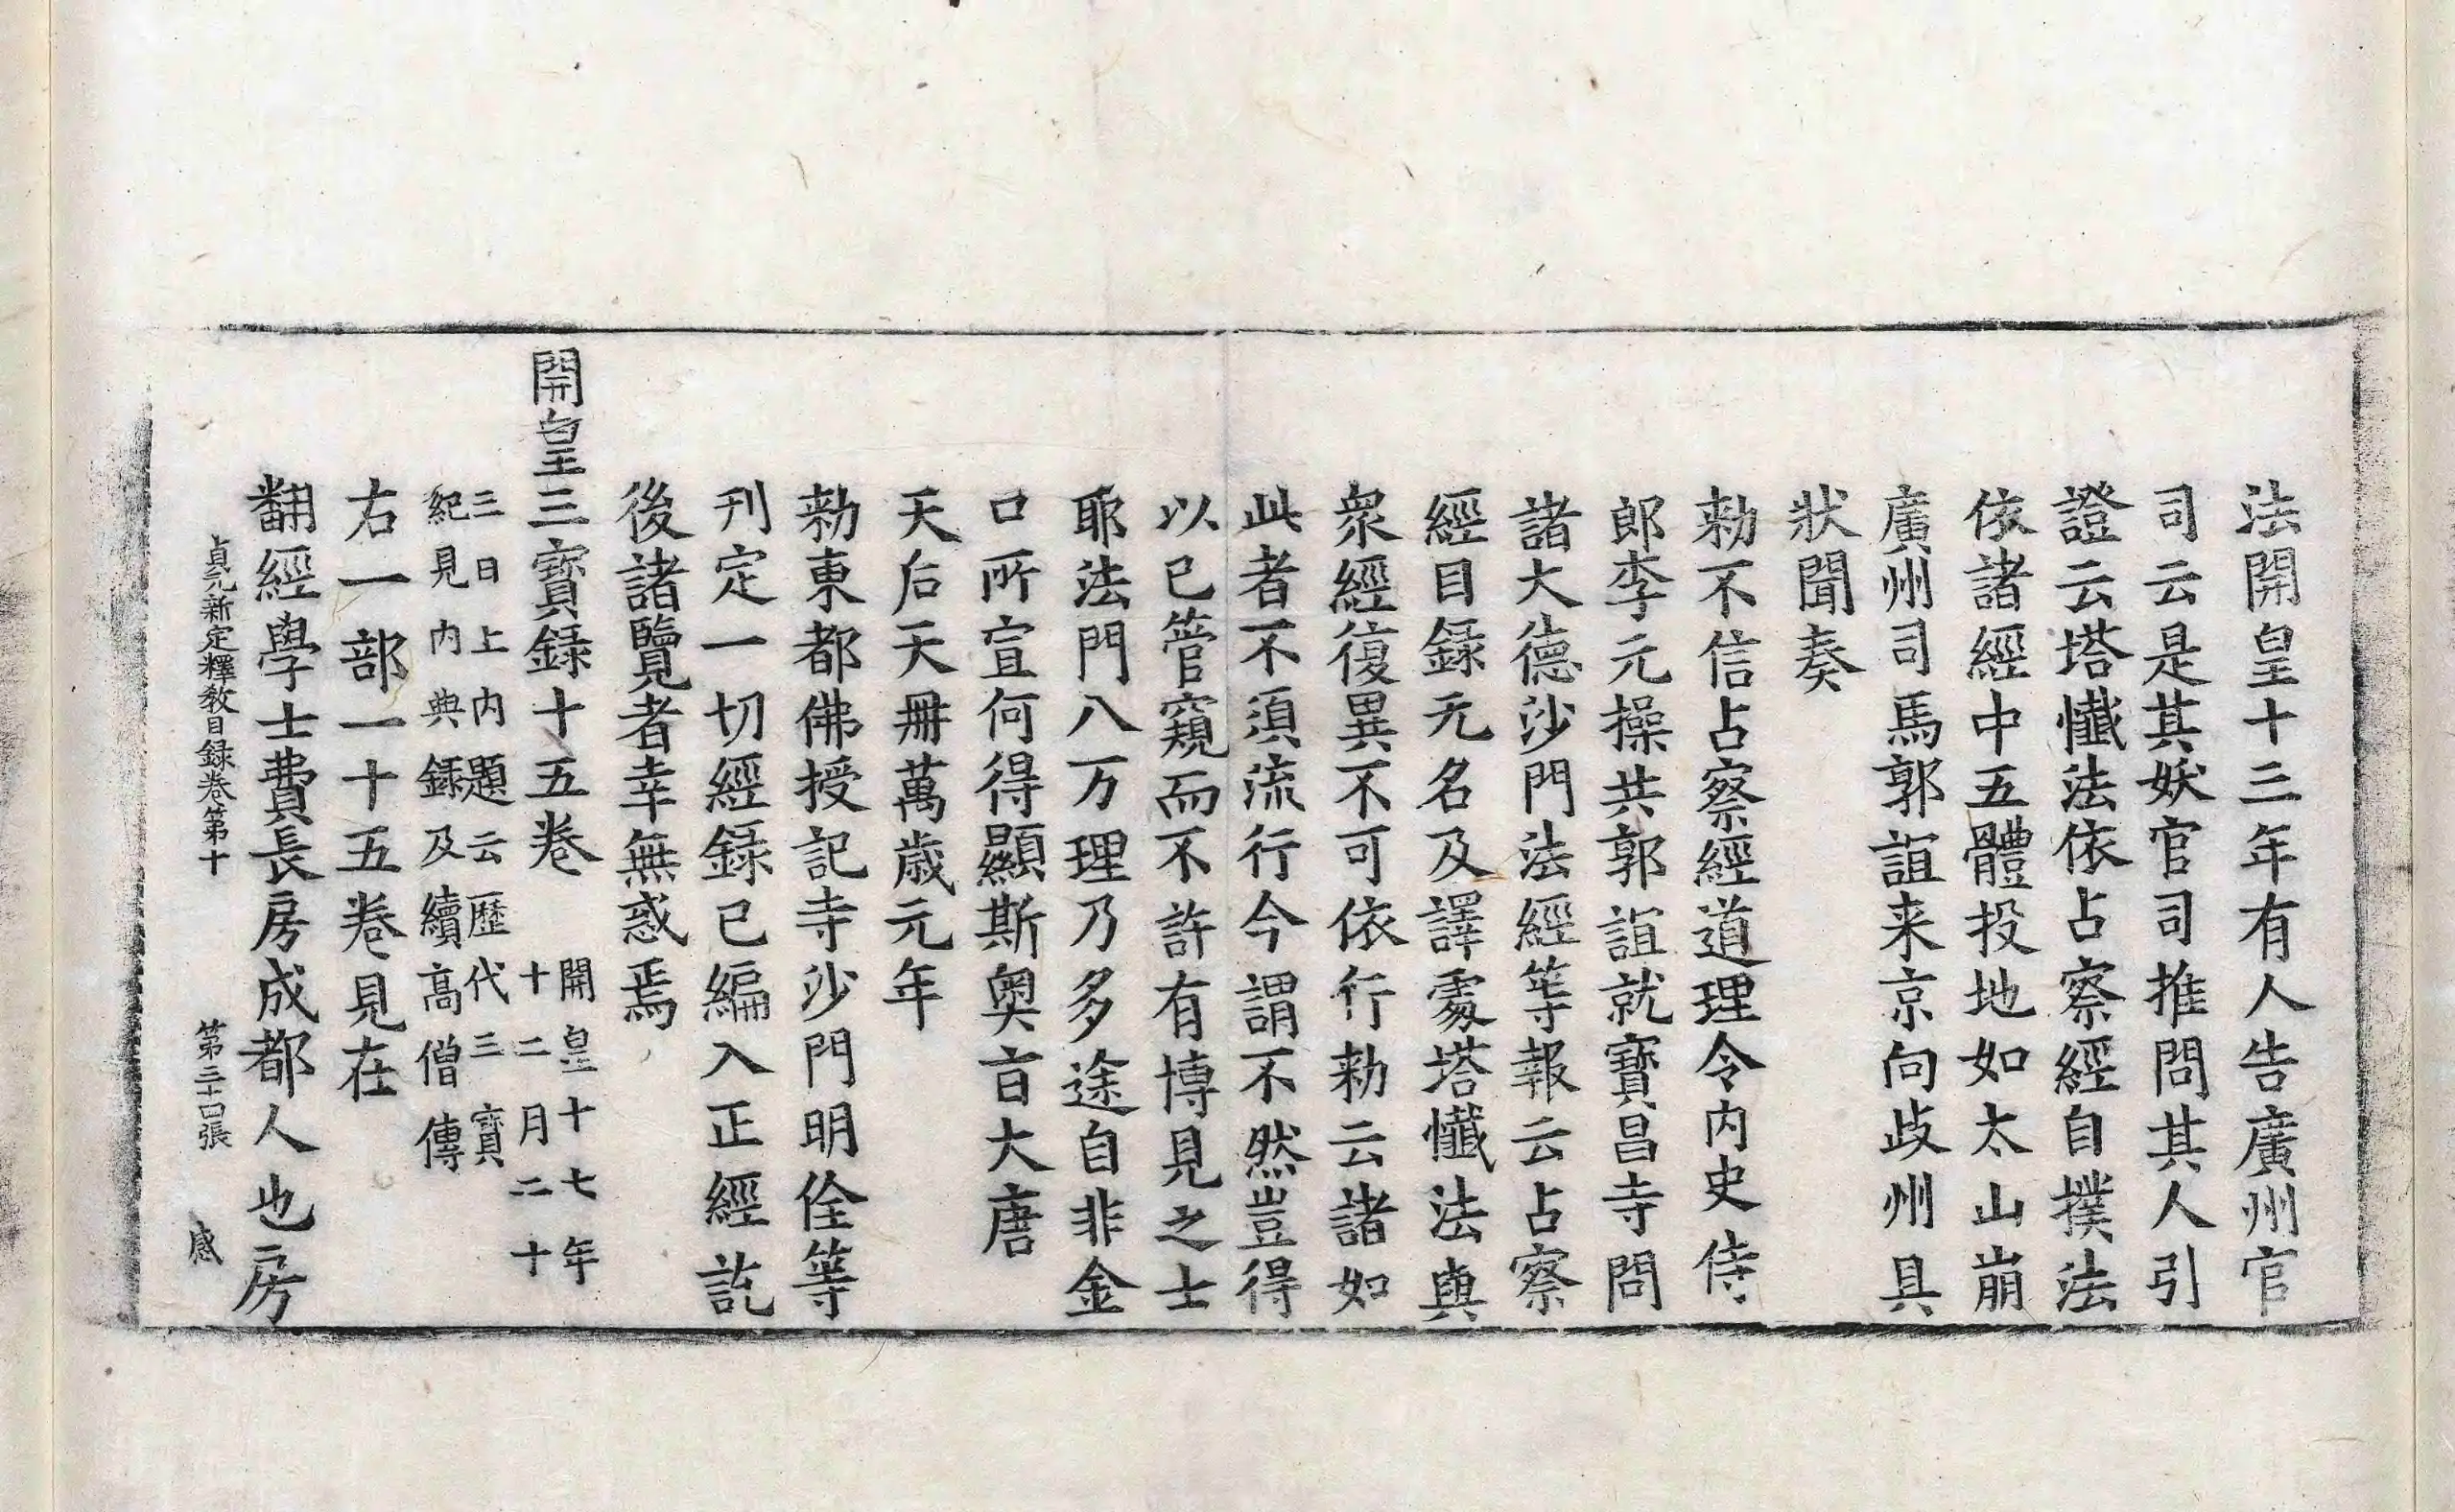 法開皇十三年有人告廣州官
司云是其妖官司推問其人引
證云塔懺法依占察經自撲法
依諸經中五體投地如太山崩
廣州司馬郭誼来京向歧州具
狀聞奏
勑不信占察經道理令内史侍
郎李元操共郭誼就寶昌寺問
諸大德沙門法經等報云占察
經目録无名及譯處塔懺法與
衆經復異不可依行勑云諸如
此者不須流行今謂不然豈得
以已管窺而不許有博見之士
耶法門八万理乃多途自非金
口所宣何得顯斯奥㫖大唐
天后天冊萬歲元年
勑東都佛授記寺沙門明佺等
刊定一切經録已編入正經訖
後諸覽者幸無惑焉
開皇三寶録十五卷 開皇十七年十二月二十
三日上内題云歷代三寶紀見内典録及續高僧傳
右一部一十五卷見在
翻經學士費長房成都人也房
貞元新定釋教目録卷第十 第三十四張 感